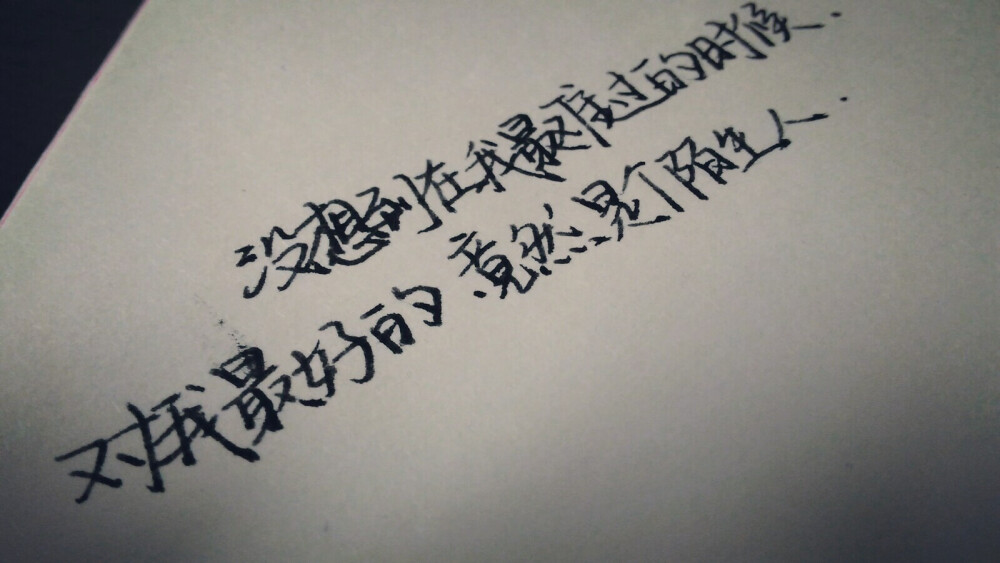 没想到在我最难过的时候.
对我最好的 竟然是个陌生人.